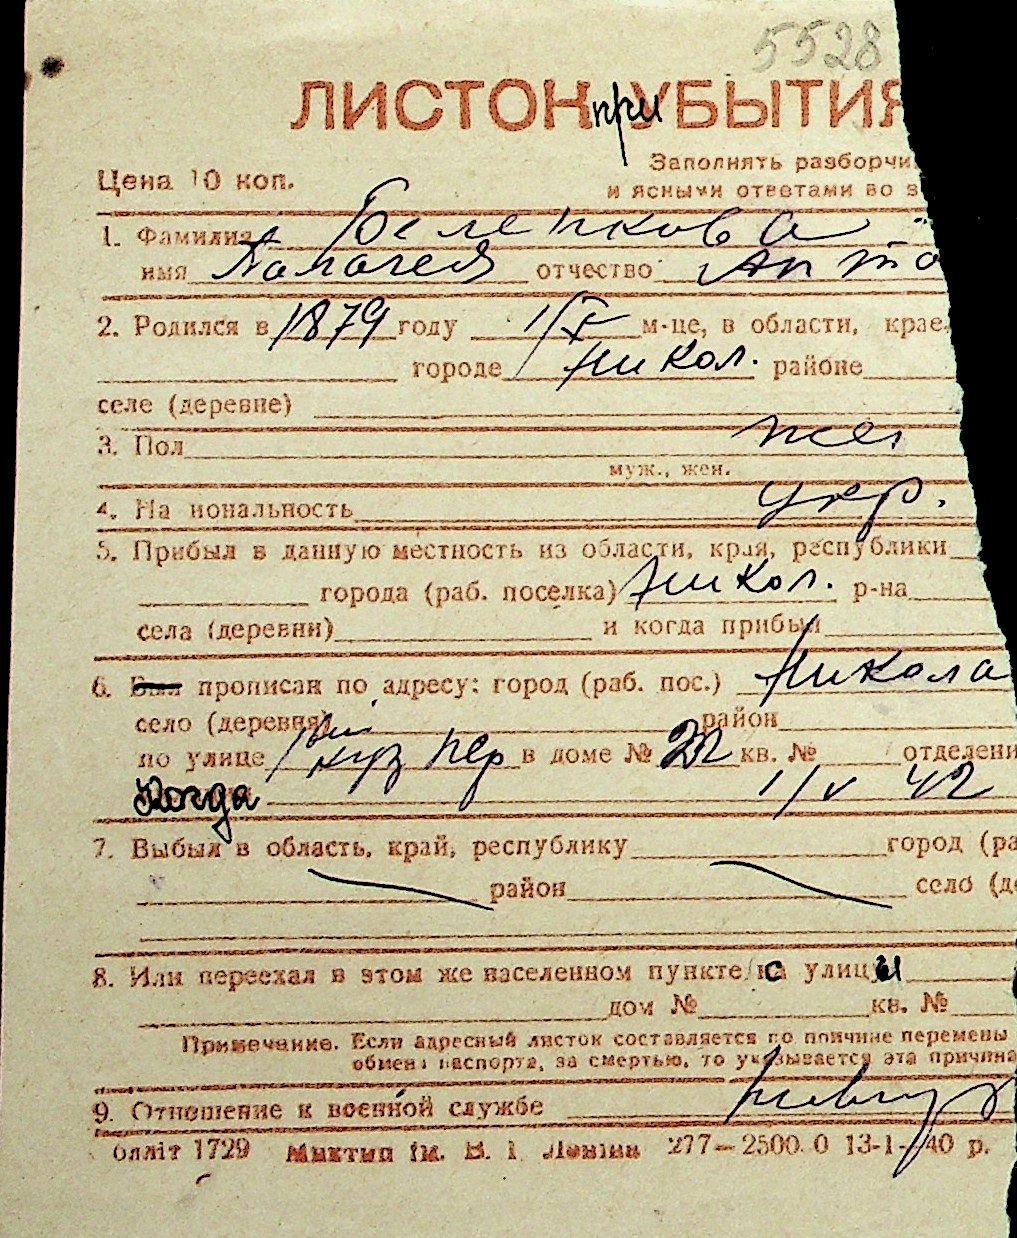 5528
ЛИСТОК при УБЫТИЯ
Заполнять разборчи
Цена 10 коп.
и ясными ответами во в
1. Фамилия Беленкова
имя Пелагея отчество Анто
2. Родился в 1879 году 1/X м-це, в области, крае,
городе Никол. районе
селе (деревне)
3. Пол жен
муж., жен.
4. На иональность укр.
5. Прибыл в данную местность из области, края, республики
города (раб. поселка) Никол. р-на
села (деревни) и когда прибыл
6. Был прописан по адресу: город (раб. пос.) Никола
село (деревня) район
по улице 1 вый куз пер в доме № 22 кв. № отделени
Когда 1/V 42
7. Выбыл в область, край, республику город (ра
район село (де
8. Или переехал в этом же населенном пункте с улицы
дом № кв. №
Примечание. Если адресный листок составляется по причине перемены
обмена паспорта, за смертью, то указывается эта причина
9. Отношение к военной службе
олліт 1729 Миктип ім. В. І Леніна 277—2500.0 13-1-40 р.